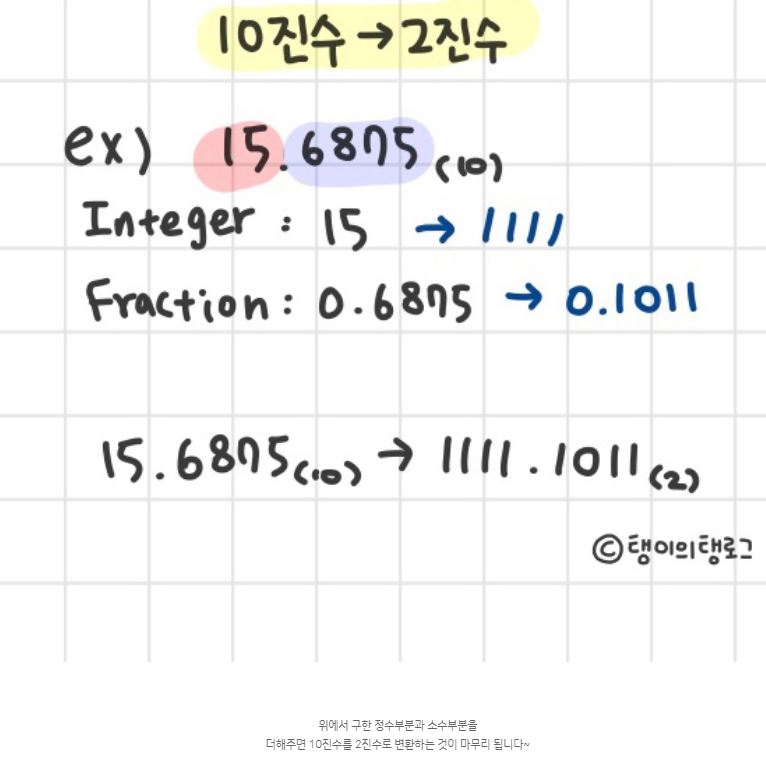 10진수 → 2진수
ex) 15.6875(10)
Integer : 15 → 1111
Fraction : 0.6875 → 0.1011
15.6875(10) → 1111.1011(2)
©탱이의탱로그
위에서 구한 정수부분과 소수부분을
더해주면 10진수를 2진수로 변환하는 것이 마무리 됩니다~